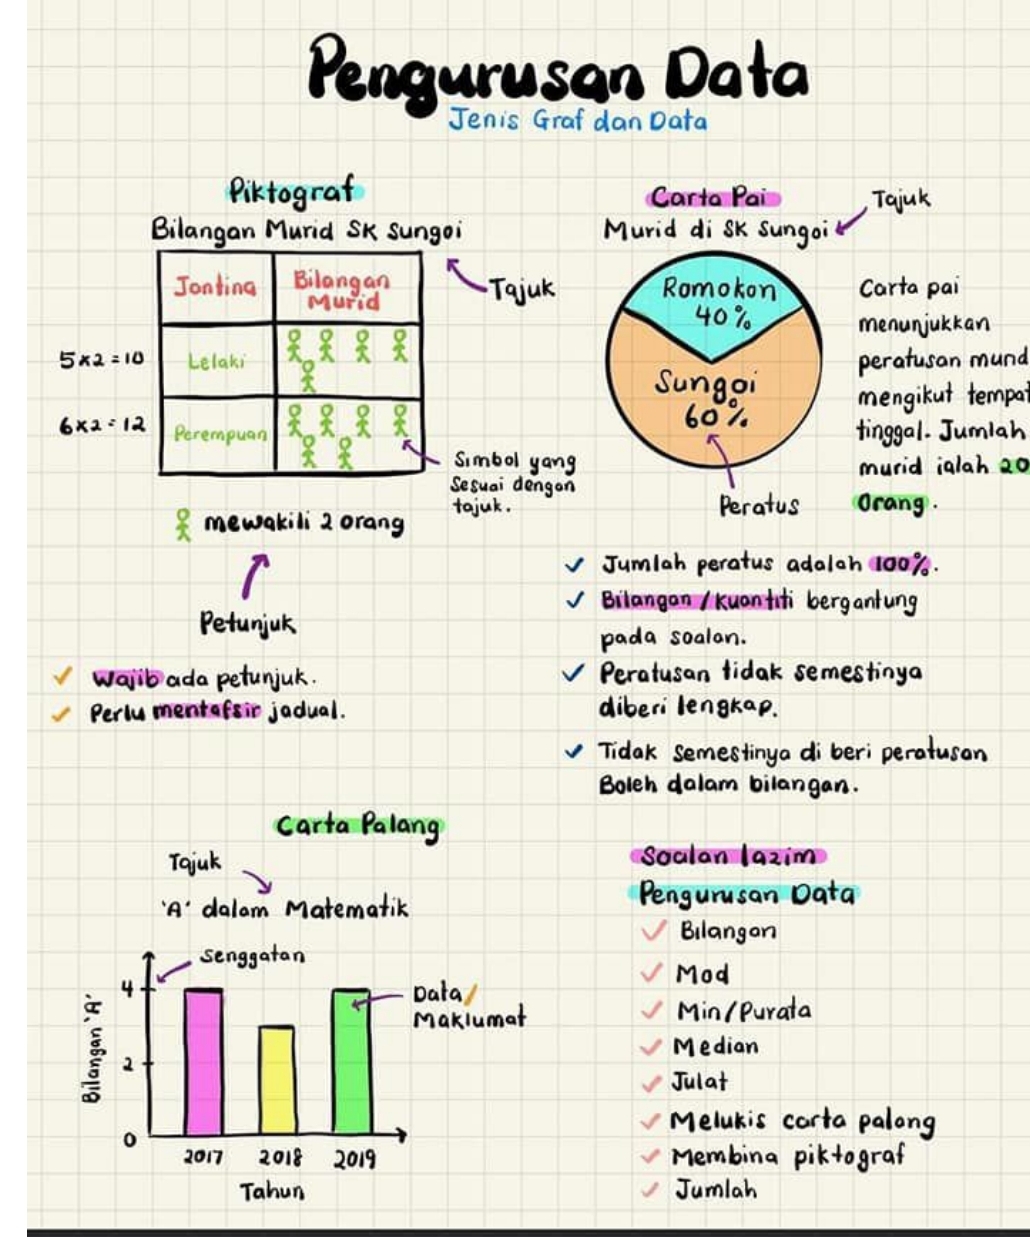 Pengurusan Data
Jenis Graf dan Data
Piktograf
Bilangan Murid SK Sungai
Tajuk
Jantina
Bilangan
Murid
5x2=10
Lelaki
6x2=12
Perempuan
Simbol yang
Sesuai dengan
tajuk.
mewakili 2 orang
Petunjuk
Wajib ada petunjuk.
Perlu mentafsir jadual.
Carta Pai
Tajuk
Murid di SK Sungai
Romokon
40%
Sungai
60%
Peratus
Carta pai
menunjukkan
peratusan murid
mengikut tempat
tinggal. Jumlah
murid ialah 20
Orang.
Jumlah peratus adalah 100%.
Bilangan/Kuantiti bergantung
pada soalan.
Peratusan tidak semestinya
diberi lengkap.
Tidak semestinya di beri peratusan
Boleh dalam bilangan.
Carta Palang
Tajuk
'A' dalam Matematik
Senggatan
4
2
0
Bilangan 'A'
Data/
Maklumat
2017 2018 2019
Tahun
Soalan lazim
Pengurusan Data
Bilangan
Mod
Min/Purata
Median
Julat
Melukis carta palang
Membina piktograf
Jumlah